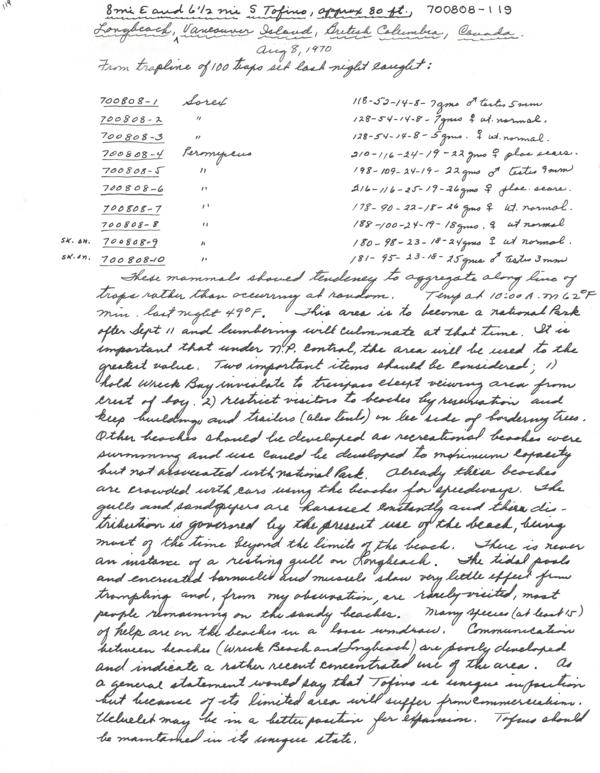 119
8 mi E and 6 1/2 mi S Tofino, approx 80 ft., 700808-119
Longbeach, Vancouver Island, British Columbia, Canada.
Aug 8, 1970
From trapline of 100 traps set last night caught:
700808-1 Sorex 118-52-14-8-7gms ♂ testes 5mm
700808-2 " 128-54-14-8-7gms ♀ ut. normal.
700808-3 " 128-54-14-8-5gms. ♀ ut. normal.
700808-4 Peromyscus 210-116-24-19-22gms ♀ plac scars.
700808-5 " 198-109-24-19-22gms ♂ testes 9mm
700808-6 " 216-116-25-19-26gms ♀ plac. scars.
700808-7 " 178-90-22-18-26 gms ♀ ut. normal.
700808-8 " 188-100-24-19-18gms. ♀ ut normal
SK. ON. 700808-9 " 180-98-23-18-24gms ♀ ut normal.
SK. ON. 700808-10 " 181-95-23-18-25gms ♂ testes 3mm
These mammals showed tendency to aggregate along line of
traps rather than occurring at random. Temp at 10:00 A.M 62°F
min. last night 49°F. This area is to become a national Park
after Sept 11 and lumbering will culminate at that time. It is
important that under N.P. control, the area will be used to the
greatest value. Two important items should be considered; 1)
hold Wreck Bay inviolate to trespass except viewing area from
crest of bay. 2) restrict visitors to beaches by reservation and
keep buildings and trailers (also tents) on lee side of bordering trees.
Other beaches should be developed as recreational beaches were
swimming and use could be developed to maximum capacity
but not associated with National Park. Already these beaches
are crowded with cars using the beaches for speedways. The
gulls and sandpipers are harassed constantly and there dis-
tribution is governed by the present use of the beach, being
most of the time beyond the limits of the beach. There is never
an instance of a resting gull on Longbeach. The tidal pools
and encrusted barnacles and mussels show very little effect from
trampling and, from my observation, are rarely visited, most
people remaining on the sandy beaches. Many species (at least 15)
of kelp are on the beaches in a loose windrow. Communication
between beaches (Wreck Beach and Lngbeach) are poorly developed
and indicate a rather recent concentrated use of the area. As
a general statement would say that Tofino is unique in position
but because of its limited area will suffer from commercialism.
Ucluelet may be in a better position for expansion. Tofino should
be maintained in its unique state.